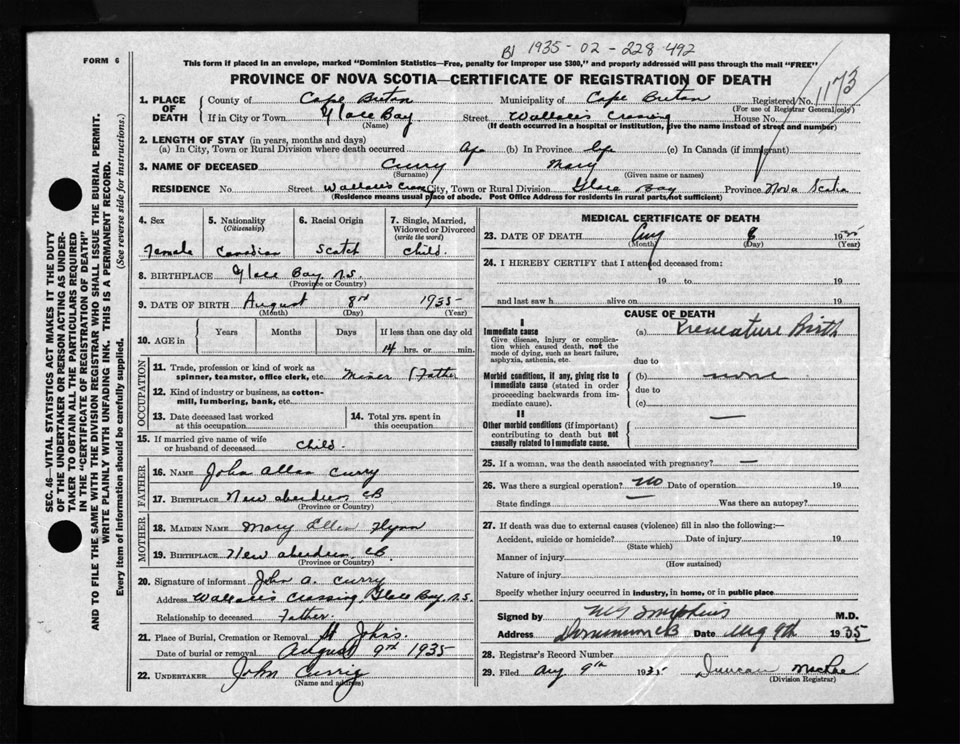 BJ 1935-02-228-492
FORM 6
This form if placed in an envelope, marked "Dominion Statistics—Free, penalty for improper use $300," and properly addressed will pass through the mail "FREE"
PROVINCE OF NOVA SCOTIA—CERTIFICATE OF REGISTRATION OF DEATH
1173
SEC. 46—VITAL STATISTICS ACT MAKES IT THE DUTY
OF THE UNDERTAKER OR PERSON ACTING AS UNDER-
TAKER TO OBTAIN ALL THE PARTICULARS REQUIRED
IN THE "CERTIFICATE OF REGISTRATION OF DEATH"
AND TO FILE THE SAME WITH THE DIVISION REGISTRAR WHO SHALL ISSUE THE BURIAL PERMIT.
WRITE PLAINLY WITH UNFADING INK. THIS IS A PERMANENT RECORD.
Every item of information should be carefully supplied. (See reverse side for instructions.)
1. PLACE OF DEATH County of Cape Breton Municipality of Cape Breton Registered No.
(For use of Registrar General only)
If in City or Town Glace Bay Street Wallace's Crossing House No.
(Name) (If death occurred in a hospital or institution, give the name instead of street and number)
2. LENGTH OF STAY (in years, months and days)
(a) In City, Town or Rural Division where death occurred (b) In Province (c) In Canada (if immigrant)
3. NAME OF DECEASED Curry Mary
(Surname) (Given name or names)
RESIDENCE No. Street Wallace's Cross City, Town or Rural Division Glace Bay Province Nova Scotia
(Residence means usual place of abode. Post Office Address for residents in rural parts not sufficient)
4. Sex 5. Nationality 6. Racial Origin 7. Single, Married,
(Citizenship) Widowed or Divorced
(write the word)
Female Canadian Scotch Child.
8. BIRTHPLACE Glace Bay N.S.
(Province or Country)
9. DATE OF BIRTH August 8 1935
(Month) (Day) (Year)
10. AGE in Years Months Days If less than one day old
14 hrs. or min.
OCCUPATION
11. Trade, profession or kind of work as
spinner, teamster, office clerk, etc. Miner (Father
12. Kind of industry or business, as cotton-
mill, lumbering, bank, etc.
13. Date deceased last worked 14. Total yrs. spent in
at this occupation this occupation
15. If married give name of wife
or husband of deceased Child.
FATHER
16. NAME John Allan Curry
17. BIRTHPLACE New Aberdeen CB
(Province or Country)
MOTHER
18. MAIDEN NAME Mary Ellen Flynn
19. BIRTHPLACE New Aberdeen CB
(Province or Country)
20. Signature of informant John A. Curry
Address Wallace's Crossing, Glace Bay, N.S.
Relationship to deceased Father.
21. Place of Burial, Cremation or Removal St Johns.
Date of burial or removal August 9th 1935
22. UNDERTAKER John
(Name and address)
MEDICAL CERTIFICATE OF DEATH
23. DATE OF DEATH Aug 8 19
(Month) (Day) (Year)
24. I HEREBY CERTIFY that I attended deceased from:
19 to 19
and last saw h alive on 19
CAUSE OF DEATH
I
Immediate cause (a) Premature Birth
Give disease, injury or complica-
tion which caused death, not the
mode of dying, such as heart failure,
asphyxia, asthenia, etc. due to
Morbid conditions, if any, giving rise to (b) none
immediate cause (stated in order due to
proceeding backwards from im-
mediate cause). (c)
II
Other morbid conditions (if important) —
contributing to death but not
causally related to immediate cause.
25. If a woman, was the death associated with pregnancy? —
26. Was there a surgical operation? No Date of operation 19
State findings — Was there an autopsy?
27. If death was due to external causes (violence) fill in also the following:—
Accident, suicide or homicide? Date of injury 19
(State which)
Manner of injury
(How sustained)
Nature of injury
Specify whether injury occurred in industry, in home, or in public place
Signed by M.D.
Address Dominion CB Date Aug 9th 1935
28. Registrar's Record Number
29. Filed Aug 9th 1935 Duncan MacRae
(Division Registrar)